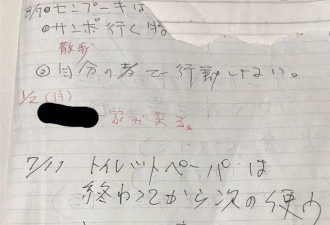 8/9 ◎センプーキは
◎サンポ行く時
散歩
◎自分の考で行動しない。
1/2(月)
家が来る。
7/17 トイレットペーパは
終わってから次の使う